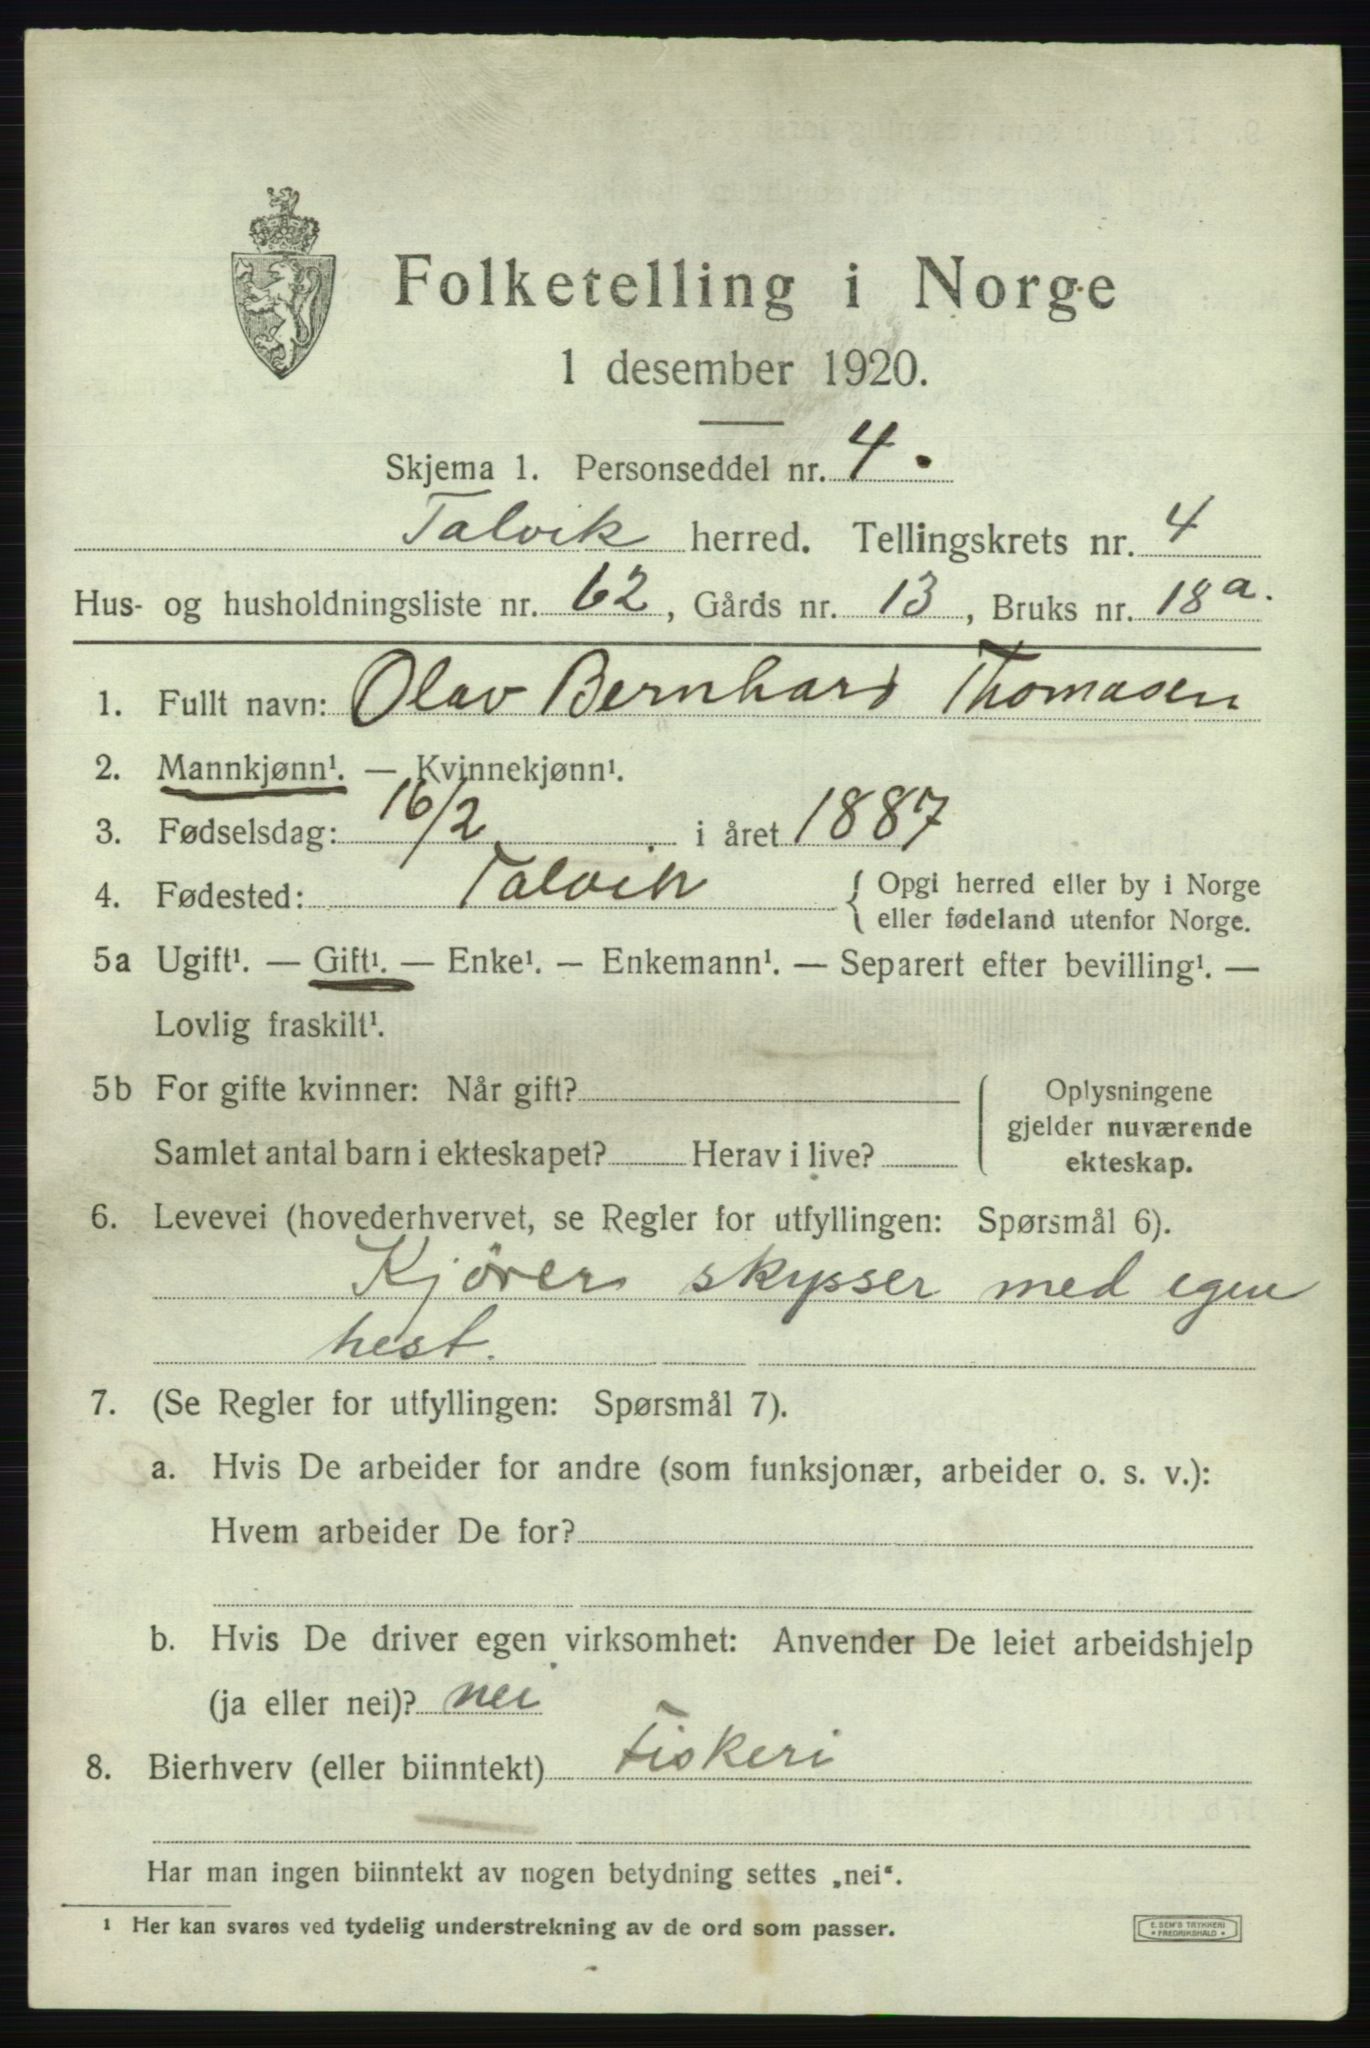 Folketelling i Norge
1 desember 1920.
Skjema 1. Personseddel nr. 4.
Talvik herred. Tellingskrets nr. 4
Hus- og husholdningsliste nr. 62, Gårds nr. 13, Bruks nr. 18a.
1. Fullt navn: Olav Bernhard Thomasen
2. Mannkjønn¹. — Kvinnekjønn¹.
3. Fødselsdag: 16/2 i året 1887
4. Fødested: Talvik { Opgi herred eller by i Norge
eller fødeland utenfor Norge.
5a Ugift¹. — Gift¹. — Enke¹. — Enkemann¹. — Separert efter bevilling¹. —
Lovlig fraskilt¹.
5b For gifte kvinner: Når gift?
Samlet antal barn i ekteskapet? Herav i live?
Oplysningene
gjelder nuværende
ekteskap.
6. Levevei (hovederhvervet, se Regler for utfyllingen: Spørsmål 6).
Kjörer skysser med egen
hest.
7. (Se Regler for utfyllingen: Spørsmål 7).
a. Hvis De arbeider for andre (som funksjonær, arbeider o. s. v.):
Hvem arbeider De for?
b. Hvis De driver egen virksomhet: Anvender De leiet arbeidshjelp
(ja eller nei)? nei
8. Bierhverv (eller biinntekt) Fiskeri
Har man ingen biinntekt av nogen betydning settes „nei“.
¹ Her kan svares ved tydelig understrekning av de ord som passer.
E. SEM'S TRYKKERI
* FREDRIKSHALD *